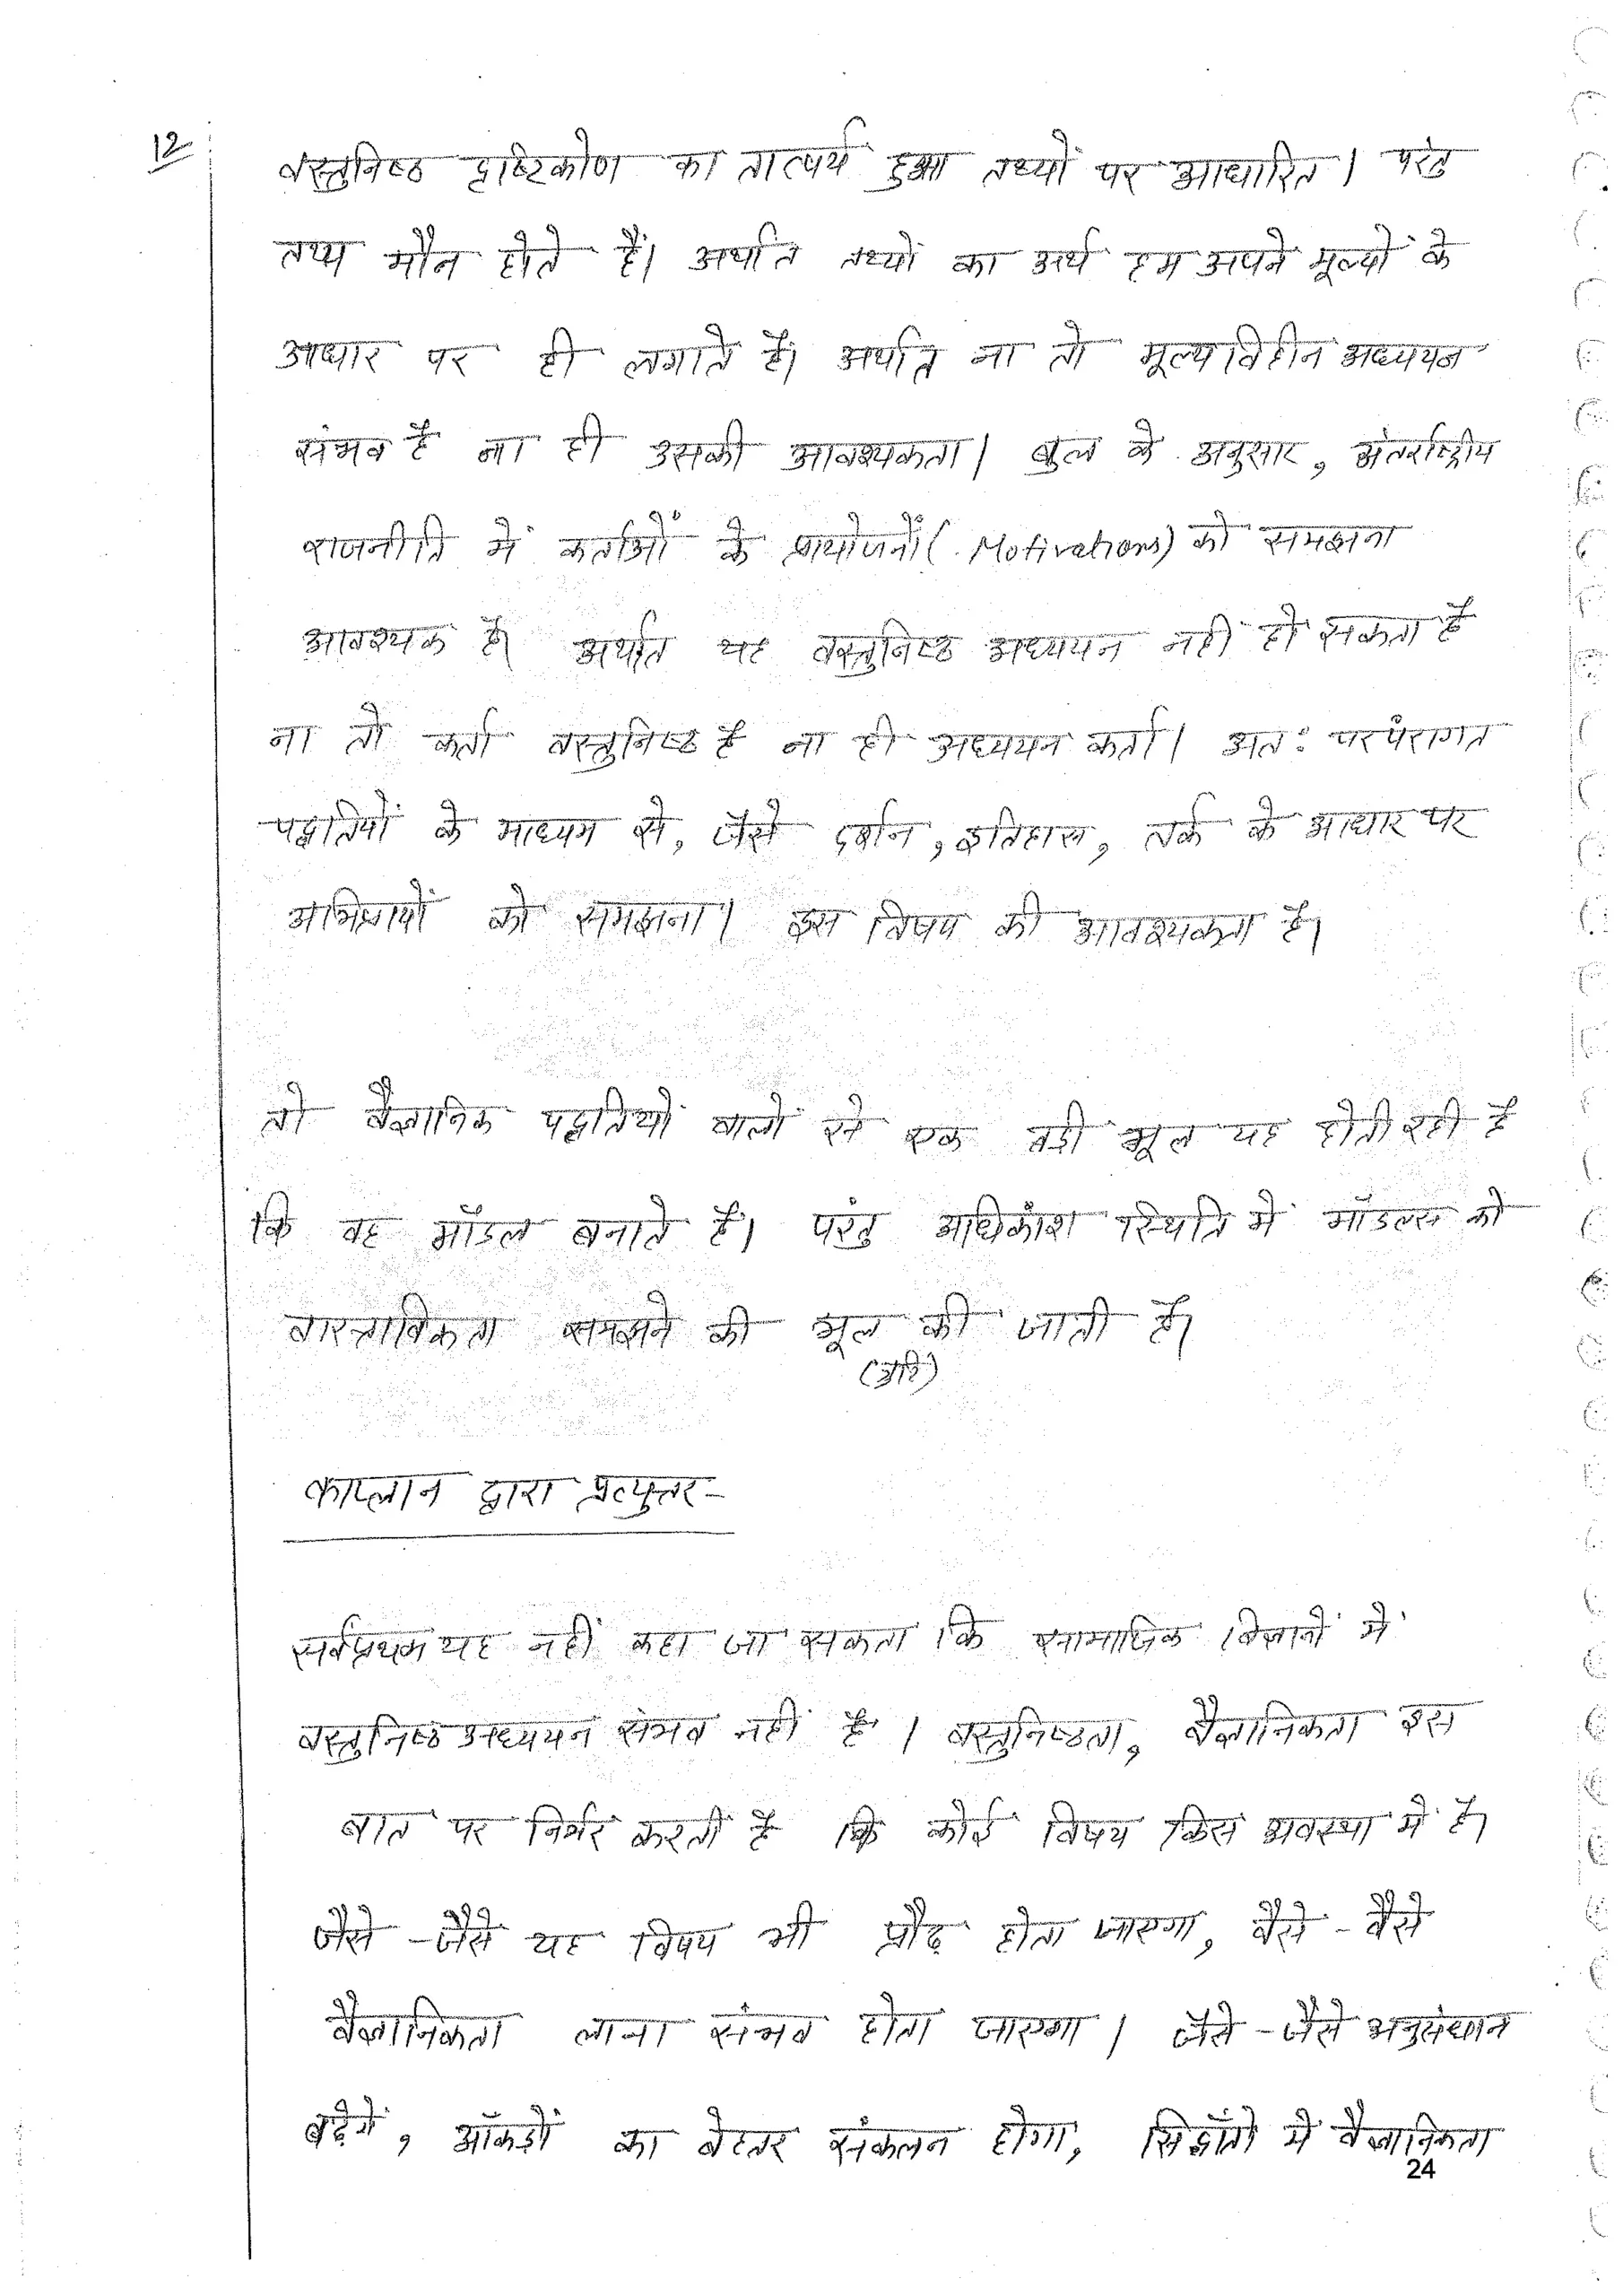 12
वस्तुनिष्ठ दृष्टिकोण का तात्पर्य हुआ तथ्यों पर आधारित। परंतु
तथ्य मौन होते हैं। अर्थात तथ्यों का अर्थ हम अपने मूल्यों के
आधार पर ही लगाते हैं। अर्थात् ना तो मूल्यविहीन अध्ययन
संभव है ना ही उसकी आवश्यकता। बुल के अनुसार, अंतर्राष्ट्रीय
राजनीति में कर्ताओं के प्रायोजनों (Motivations) को समझना
आवश्यक है। अर्थात यह वस्तुनिष्ठ अध्ययन नहीं हो सकता है
ना तो कर्ता वस्तुनिष्ठ है ना ही अध्ययन कर्ता। अतः परपंरागत
पद्धतियों के माध्यम से, जैसे दर्शन, इतिहास, तर्क के आधार पर
अभिप्रायों को समझना। इस विषय की आवश्यकता है।
तो वैज्ञानिक पद्धतियों वालों से एक बड़ी भूल यह होती रही है
कि वह मॉडल बनाते हैं। परंतु अधिकांश स्थिति में मॉडल्स को
वास्तविकता समझने की भूल की जाती है।
काप्लान द्वारा प्रत्युत्तर -
सर्वप्रथम यह नहीं कहा जा सकता कि सामाजिक विज्ञानों में
वस्तुनिष्ठ अध्ययन संभव नहीं है। वस्तुनिष्ठता, वैज्ञानिकता इस
बात पर निर्भर करती है कि कोई विषय किस अवस्था में है।
जैसे - जैसे यह विषय भी प्रौढ़ होता जाएगा, वैसे - वैसे
वैज्ञानिकता लाना संभव होता जाएगा। जैसे - जैसे अनुसंधान
बढ़ेगें, आँकड़ों का बेहतर संकलन होगा, सिद्धाँतो में वैज्ञानिकता
24